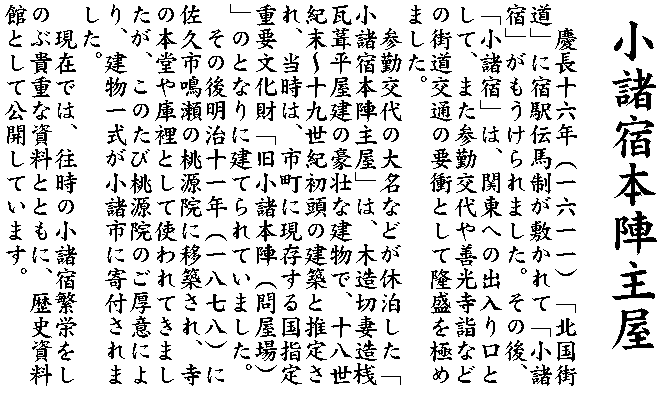 小諸宿本陣主屋
慶長十六年（一六一一）「北国街
道」に宿駅伝馬制が敷かれて「小諸
宿」がもうけられました。その後、
「小諸宿」は、関東への出入り口と
して、また参勤交代や善光寺詣など
の街道交通の要衝として隆盛を極め
ました。
参勤交代の大名などが休泊した「
小諸宿本陣主屋」は、木造切妻造桟
瓦葺平屋建の豪壮な建物で、十八世
紀末～十九世紀初頭の建築と推定さ
れ、当時は、市町に現存する国指定
重要文化財「旧小諸本陣（問屋場）
」のとなりに建てられていました。
その後明治十一年（一八七八）に
佐久市鳴瀬の桃源院に移築され、寺
の本堂や庫裡として使われてきまし
たが、このたび桃源院のご厚意によ
り、建物一式が小諸市に寄付されま
した。
現在では、往時の小諸宿繁栄をし
のぶ貴重な資料とともに、歴史資料
館として公開しています。